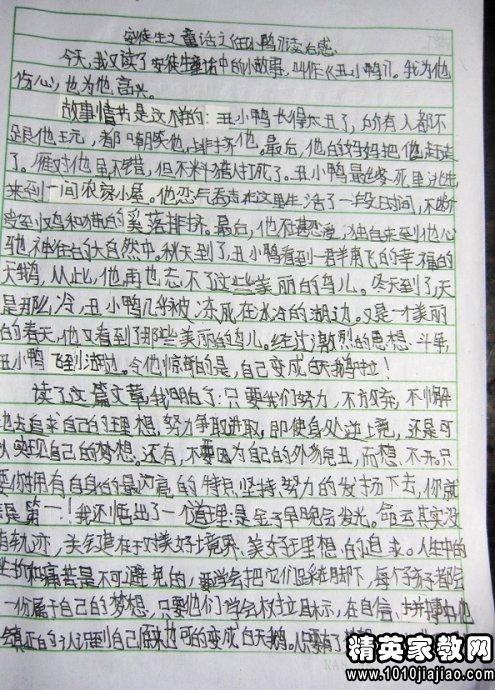 安徒生之童话之任小鸭读后感.
今天,我又读了安徒生童话中的小故事,叫作《丑小鸭》。我为他
伤心,也为他高兴。
故事情节是这样的:丑小鸭长得太丑了,所有人都不
跟他玩,都嘲笑他,排挤他。最后,他的妈妈把他赶走
了。雁对他虽不错,但不料猎人打死了。丑小鸭最终死里逃生
来到一间农家小屋。他忍气吞声在这里生活了一段日子,不断
受到小鸡和猫的奚落排挤。最后,他不堪忍受,独自来到他心
驰神往的大自然中。秋天到了,丑小鸭看到一群展飞的幸福的
天鹅,从此,他再也忘不了这些美丽的鸟儿。冬天到了,天
是那么冷,丑小鸭几乎被冻死在冰冷的湖边。又是一才美丽
的春天,他又看到了那些美丽的鸟儿。经过激烈的思想斗争,
丑小鸭飞到湖边。令他惊讶的是,自己变成白天鹅啦!
读了这篇文章,我明白了:只要我们努力,不放弃,不懈
地去追求自己的理想,努力争取进取,即使身处逆境,还是可
以实现自己的梦想。还有,不要因为自己的外貌丑,而想不开,只
要你拥有自身的最闪亮的特点,坚持努力的发扬下去,你就
是第一!我还悟出了一个道理:是金子早晚会发光。命运其实没
有轨迹,关键在于对美好境界、美好理想的追求。人生中的
挫折和痛苦是不可避免的,要学会把它们踩在脚下,每个孩子都会
一份属于自己的梦想,只要他们学会树立目标,在自信、拼搏中他
真正的认识到自己原来也可以变成白天鹅。只要有
精英家教网
www.1010jiajiao.com